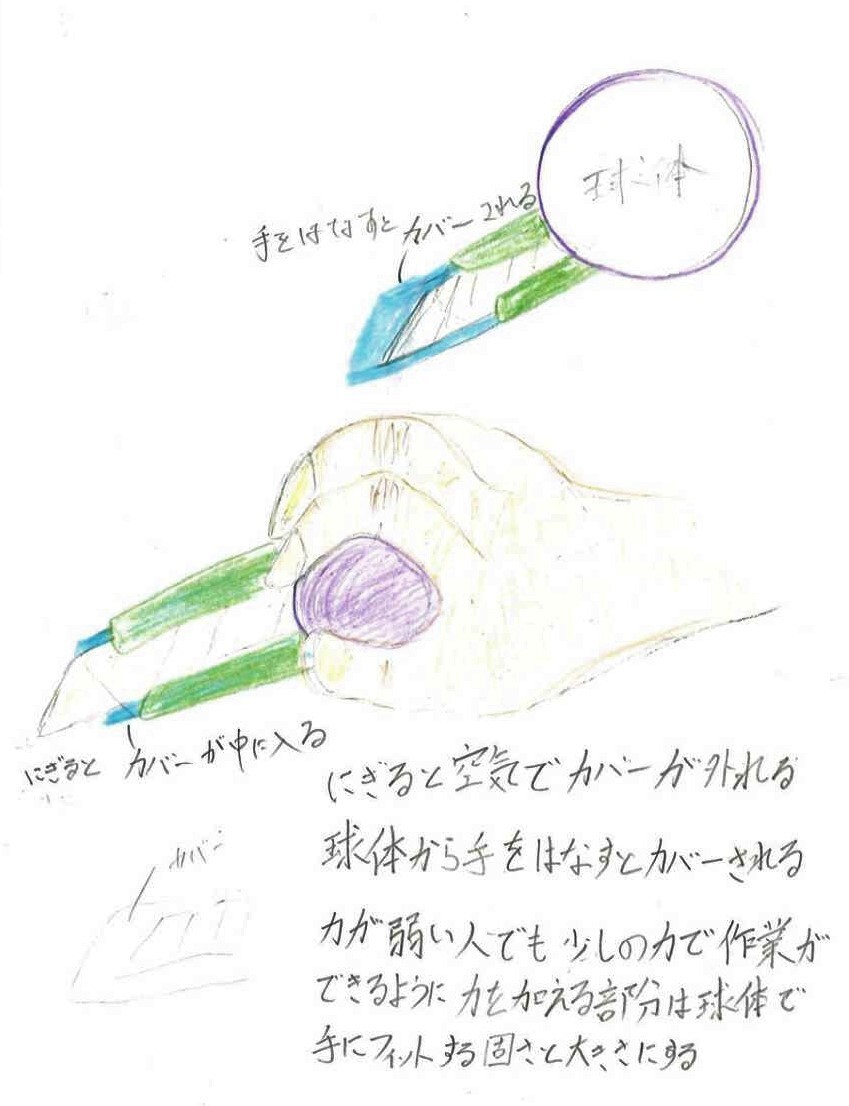 球体
手をはなすと カバーされる
にぎると カバーが中に入る
にぎると空気でカバーが外れる
カバー
球体から手をはなすとカバーされる
力が弱い人でも少しの力で作業が
できるように力を加える部分は球体で
手にフィットする固さと大きさにする